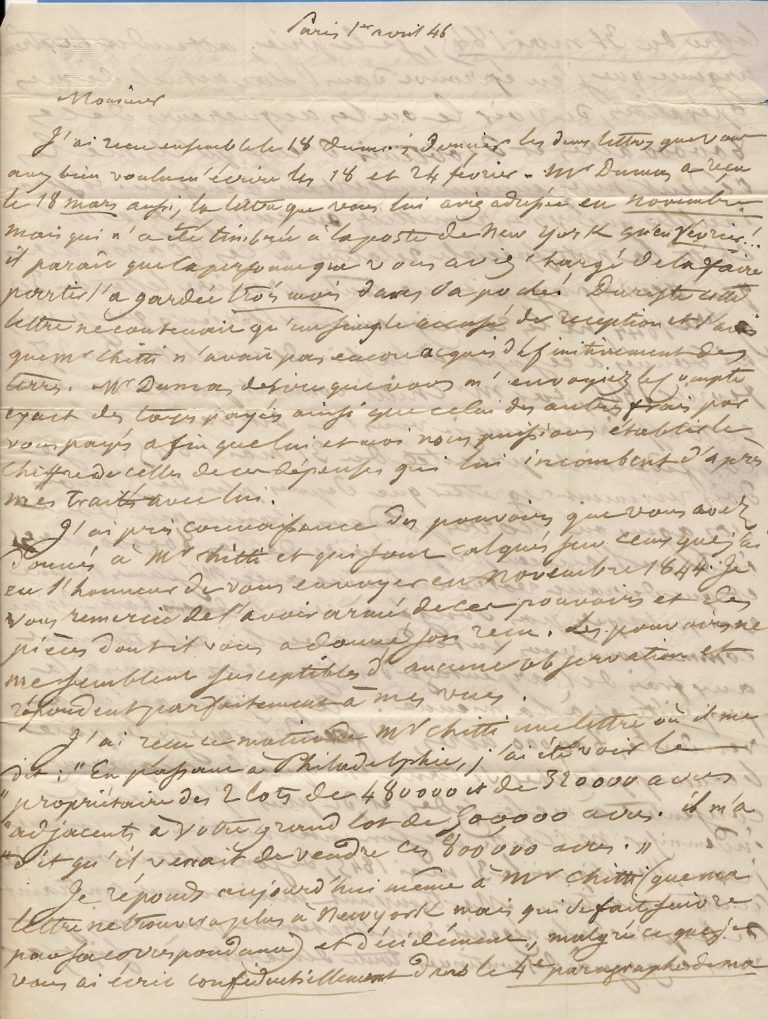 Paris 1er avril 46
Monsieur
J'ai reçu ensemble le 18 du mois dernier les deux lettres que vous
avez bien voulu m'écrire les 18 et 24 février. Mr Dumas a reçu
le 18 mars aussi, la lettre que vous lui avez adressée en novembre
mais qui n'a été timbrée à la poste de New York qu'en février!
il parait que la personne que vous aviez chargé de la faire
partir l'a gardée trois mois dans sa poche! Du reste cette
lettre ne contenait qu'un simple accusé de réception et l'avis
que Mr Chitti n'avait pas encore acquis définitivement des
terres. Mr Dumas désire que vous m'envoyiez le compte
exact des taxes payées ainsi que celui des autres frais par
vous payés afin que lui et moi nous puissions établir le
chiffre de celles de ces dépenses qui lui incombent d'après
mes traités avec lui.
J'ai pris connaissance des pouvoirs que vous avez
donnés à Mr Chitti et qui sont calqués sur ceux que j'ai
eu l'honneur de vous envoyer en novembre 1844. Je
vous remercie de l'avoir armé de ces pouvoirs et des
pièces dont il vous a donné son reçu. Les pouvoirs ne
me semblent susceptibles d'aucune observation et
répondent parfaitement à mes vues.
J'ai reçu ce matin de Mr Chitti une lettre où il me
dit: "En passant à Philadelphie, j'ai été voir le
"propriétaire des 2 lots de 480000 et de 320000 acres
"adjacents à votre grand lot de 500000 acres. il m'a
"dit qu'il venait de vendre ces 800000 acres."
Je réponds aujourd'hui même à Mr Chitti (que ma
lettre ne trouvera plus à New york mais qui se fait suivre
par sa correspondance) et décidément, malgré ce que je
vous ai écrit confidentiellement dans le 4e paragraphe de ma